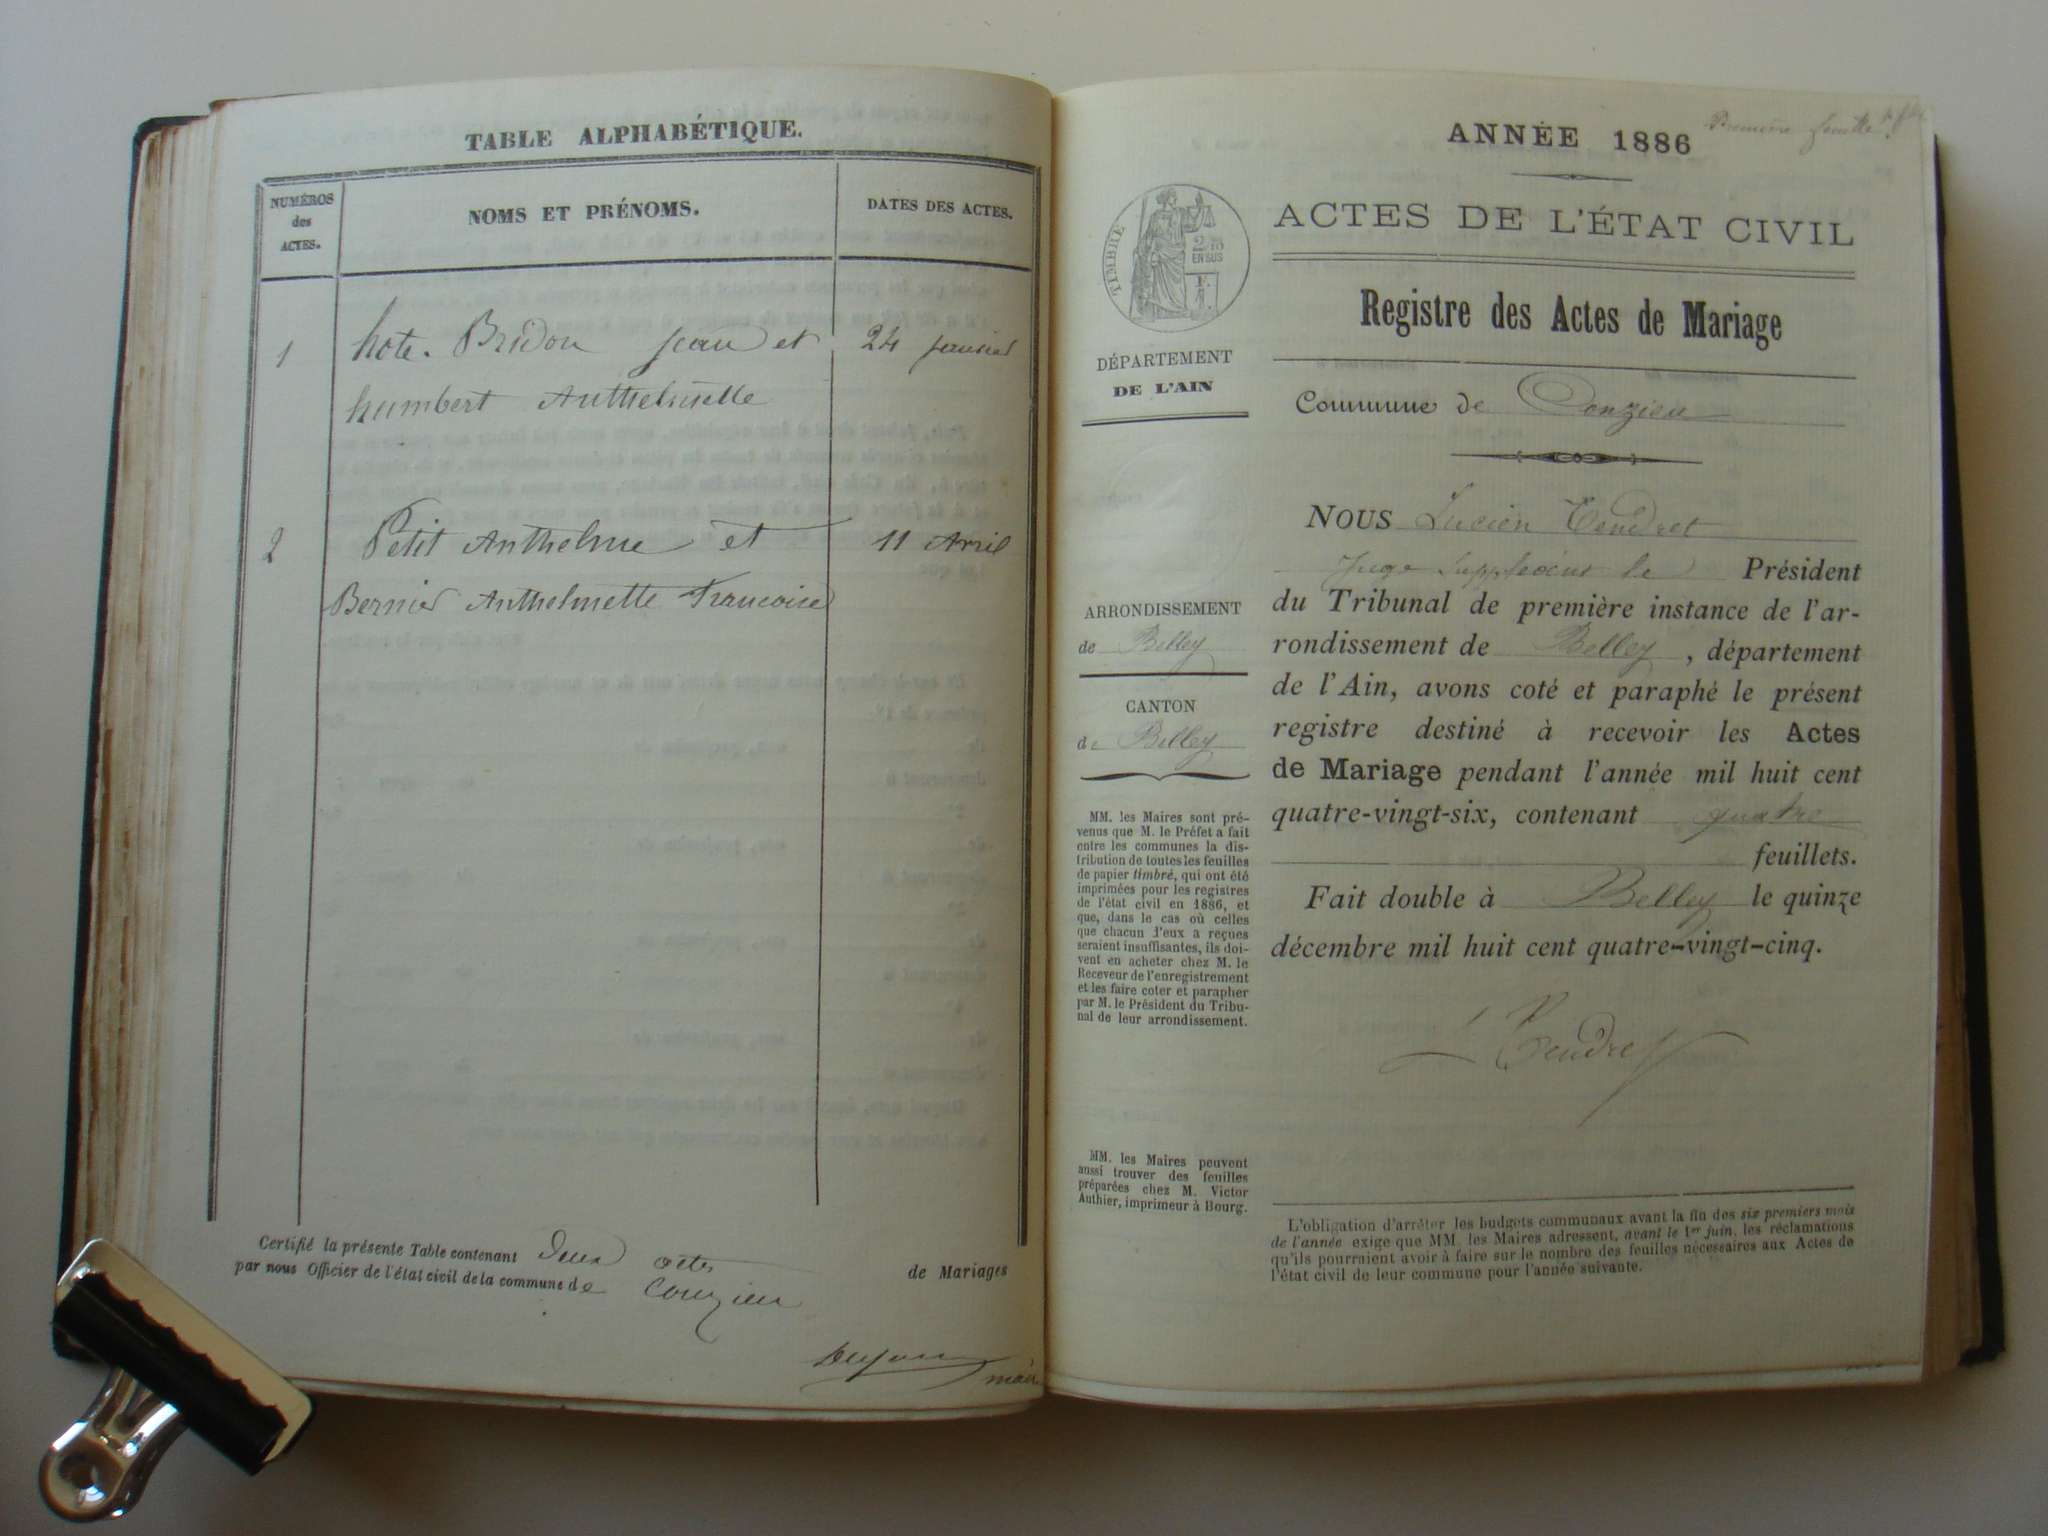 TABLE ALPHABÉTIQUE.
NUMÉROS
des
ACTES.
NOMS ET PRÉNOMS.
DATES DES ACTES.
1 hote-Bridon Jean et 24 janvier
humbert Anthelmette
2 Petit Anthelme et 11 Avril
Bernier Anthelmette Francoise
Certifié la présente Table contenant Deux actes de Mariages
par nous Officier de l'état civil de la commune de Conzieu
maire
Première feuille
ANNÉE 1886
TIMBRE
2 10
EN SUS
F.
1
ACTES DE L'ÉTAT CIVIL
Registre des Actes de Mariage
DÉPARTEMENT
DE L'AIN
Commune de Conzieu
NOUS Lucien Tendret
Juge Suppléant le Président
du Tribunal de première instance de l'ar-
rondissement de Belley, département
de l'Ain, avons coté et paraphé le présent
registre destiné à recevoir les Actes
de Mariage pendant l'année mil huit cent
quatre-vingt-six, contenant quatre
feuillets.
Fait double à Belley le quinze
décembre mil huit cent quatre-vingt-cinq.
L Tendret
ARRONDISSEMENT
de Belley
CANTON
de Belley
MM. les Maires sont pré-
venus que M. le Préfet a fait
entre les communes la dis-
tribution de toutes les feuilles
de papier timbré, qui ont été
imprimées pour les registres
de l'état civil en 1886, et
que, dans le cas où celles
que chacun d'eux a reçues
seraient insuffisantes, ils doi-
vent en acheter chez M. le
Receveur de l'enregistrement
et les faire coter et parapher
par M. le Président du Tribu-
nal de leur arrondissement.
MM. les Maires peuvent
aussi trouver des feuilles
préparées chez M. Victor
Authier, imprimeur à Bourg.
L'obligation d'arrêter les budgets communaux avant la fin des six premiers mois
de l'année exige que MM. les Maires adressent, avant le 1er juin, les réclamations
qu'ils pourraient avoir à faire sur le nombre des feuilles nécessaires aux Actes de
l'état civil de leur commune pour l'année suivante.